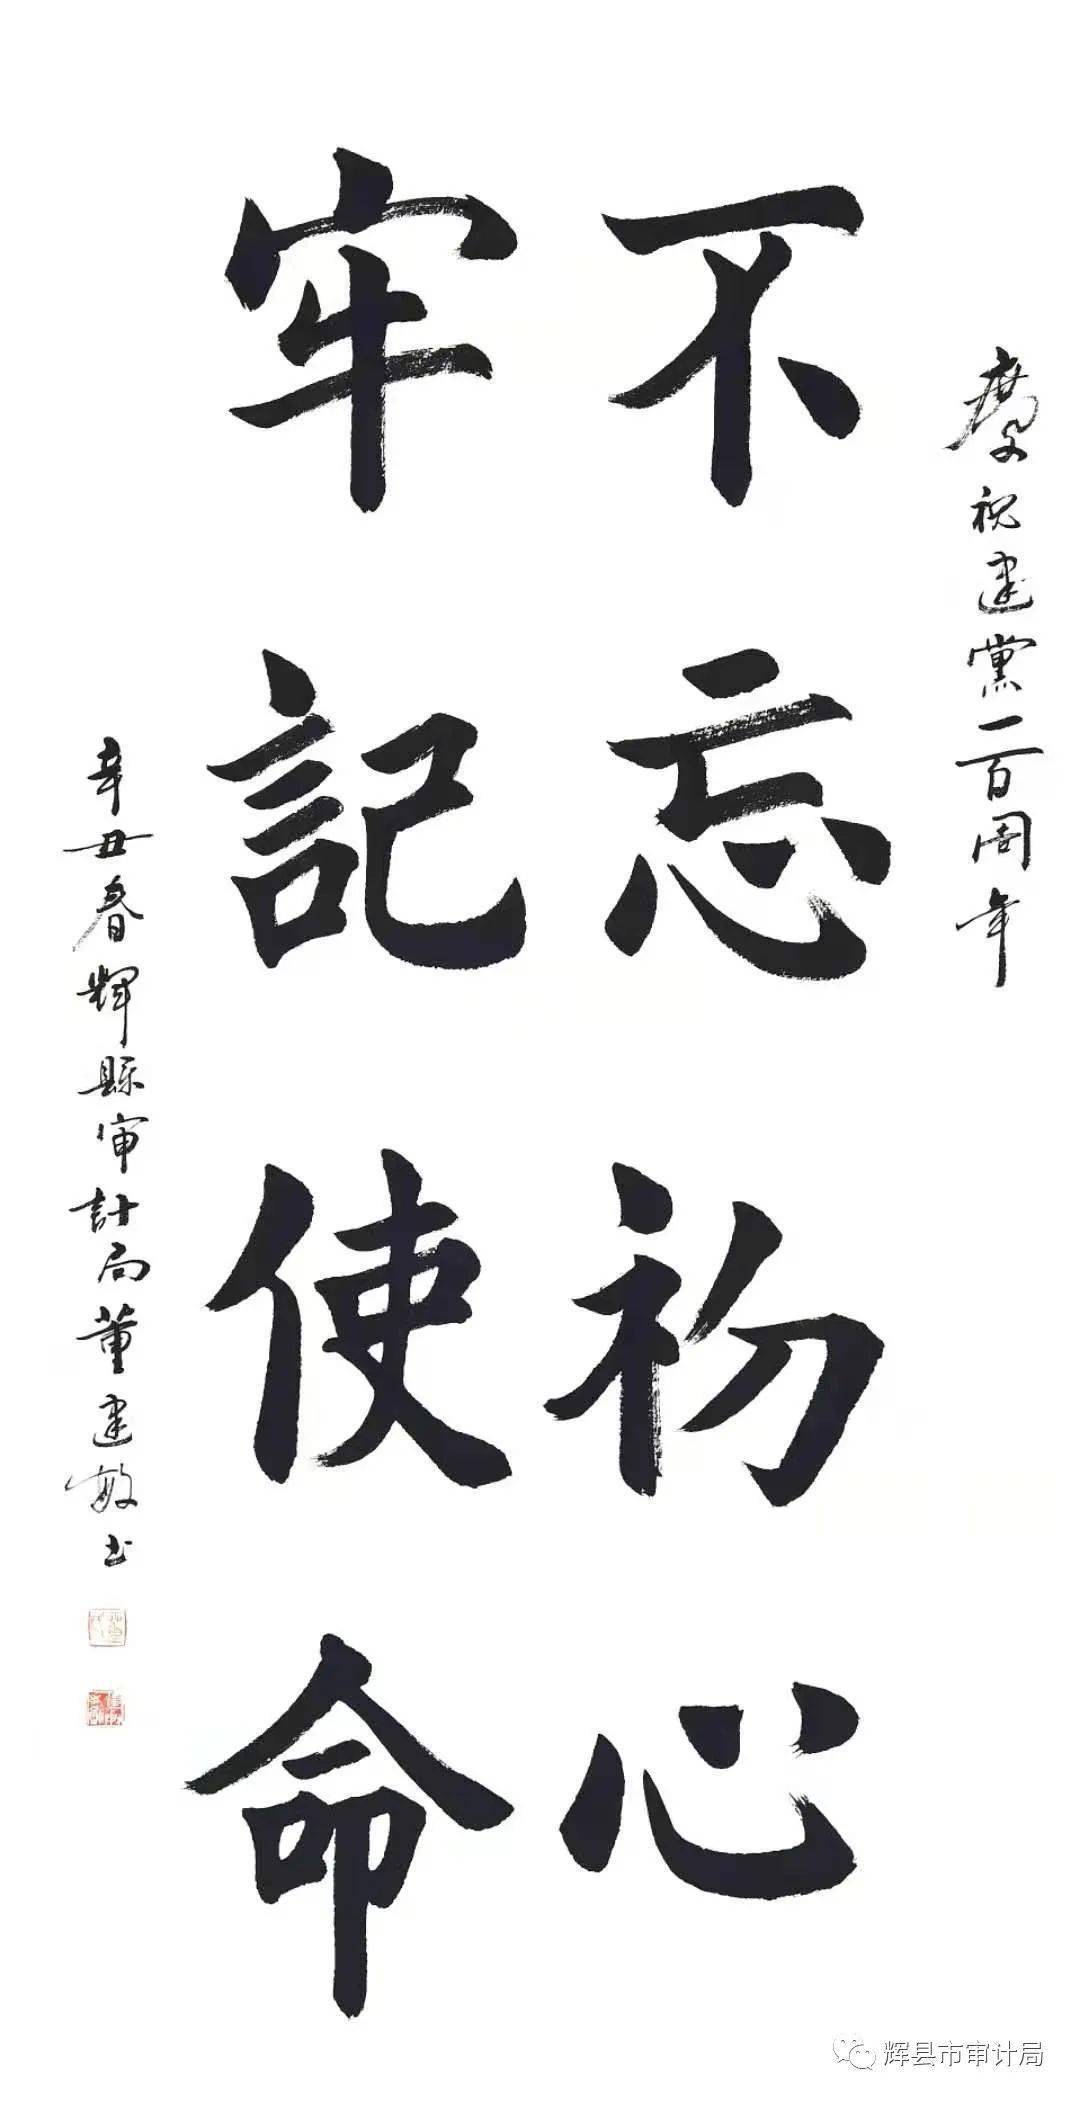 慶祝建黨一百周年
不忘初心
牢記使命
辛丑春輝縣审計局董建敏书
辉县市审计局